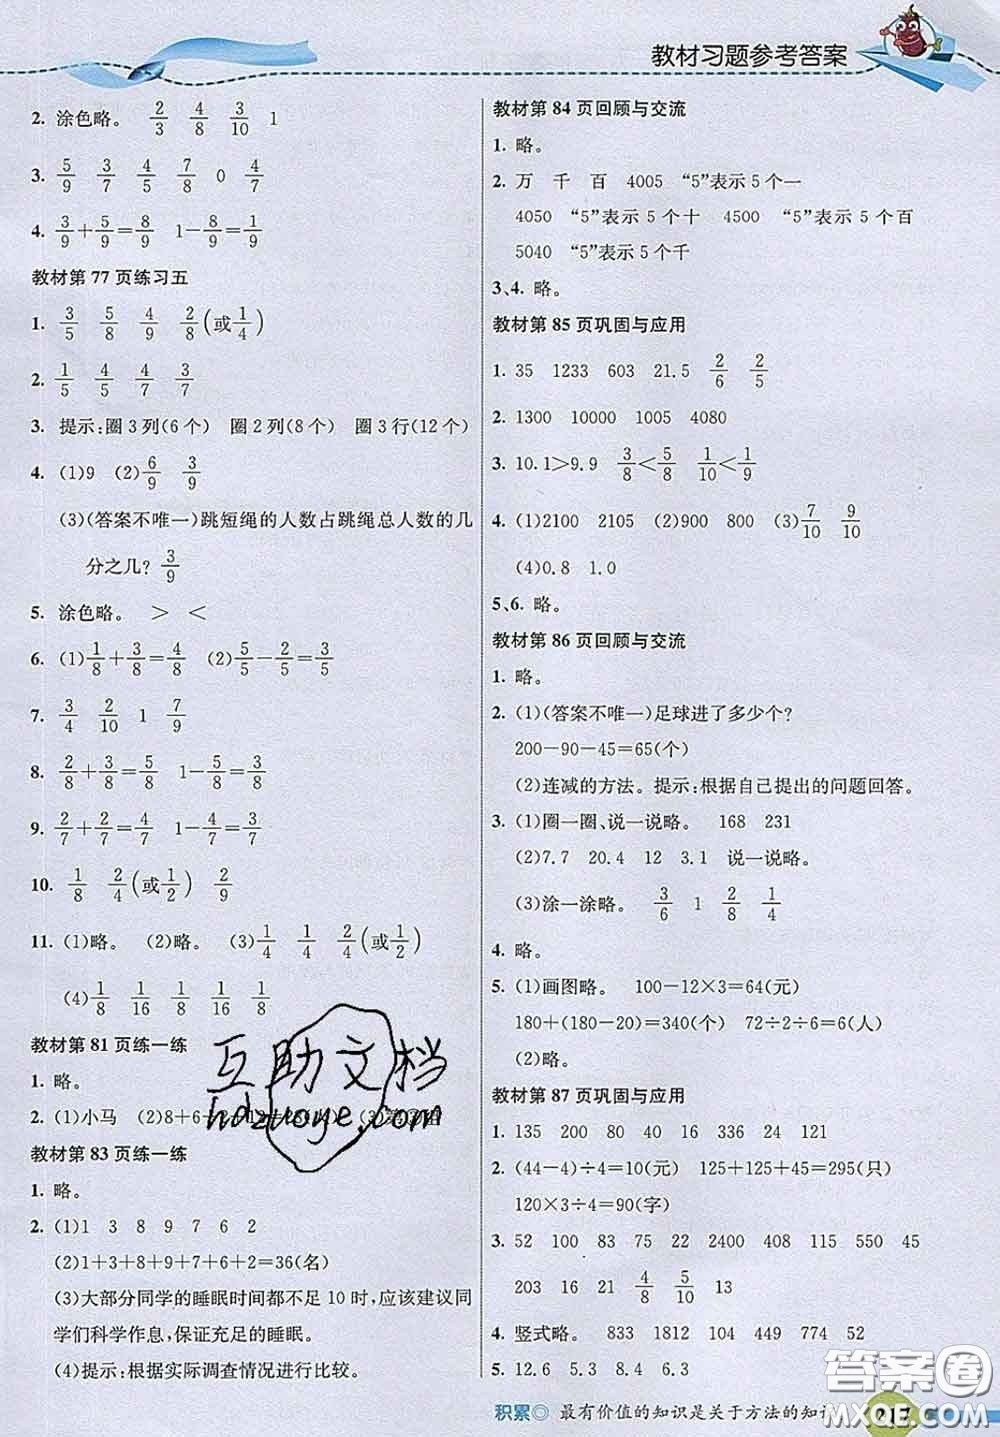 教材习题参考答案
2. 涂色略。 2/3 4/8 3/10 1
3. 5/9 3/7 4/5 7/8 0 4/7
4. 3/9+5/9=8/9 1-8/9=1/9
教材第77页练习五
1. 3/5 5/8 4/9 2/8(或1/4)
2. 1/5 4/5 4/7 3/7
3. 提示:圈3列(6个) 圈2列(8个) 圈3行(12个)
4. (1)9 (2)6/9 3/9
(3)(答案不唯一)跳短绳的人数占跳绳总人数的几
分之几? 3/9
5. 涂色略。 > <
6. (1)1/8+3/8=4/8 (2)5/5-2/5=3/5
7. 3/4 2/10 1 7/9
8. 2/8+3/8=5/8 1-5/8=3/8
9. 2/7+2/7=4/7 1-4/7=3/7
10. 1/8 2/4(或1/2) 2/9
11. (1)略。 (2)略。 (3)1/4 1/4 2/4(或1/2)
(4)1/8 1/16 1/8 1/16 1/8
教材第81页练一练
1. 略。
2. (1)小马 (2)8+6+
教材第83页练一练
1. 略。
2. (1)1 3 8 9 7 6 2
(2)1+3+8+9+7+6+2=36(名)
(3)大部分同学的睡眠时间都不足10时,应该建议同
学们科学作息,保证充足的睡眠。
(4)提示:根据实际调查情况进行比较。
教材第84页回顾与交流
1. 略。
2. 万 千 百 4005 “5”表示5个一
4050 “5”表示5个十 4500 “5”表示5个百
5040 “5”表示5个千
3、4. 略。
教材第85页巩固与应用
1. 35 1233 603 21.5 2/6 2/5
2. 1300 10000 1005 4080
3. 10.1>9.9 3/8<5/8 1/10<1/9
4. (1)2100 2105 (2)900 800 (3)7/10 9/10
(4)0.8 1.0
5、6. 略。
教材第86页回顾与交流
1. 略。
2. (1)(答案不唯一)足球进了多少个?
200-90-45=65(个)
(2)连减的方法。提示:根据自己提出的问题回答。
3. (1)圈一圈、说一说略。 168 231
(2)7.7 20.4 12 3.1 说一说略。
(3)涂一涂略。 3/6 1 2/8 1/4
4. 略。
5. (1)画图略。 100-12×3=64(元)
180+(180-20)=340(个) 72÷2÷6=6(人)
(2)略。
教材第87页巩固与应用
1. 135 200 80 40 16 336 24 121
2. (44-4)÷4=10(元) 125+125+45=295(只)
120×3÷4=90(字)
3. 52 100 83 75 22 2400 408 550 45
203 16 21 4/8 5/10 13
4. 竖式略。 833 1812 104 449 774 52
5. 12.6 5.3 8.4 6.3
积累◎ 最有价值的知识是关于方法的知识
217
互助文档
hdzuoye.com
答案圈
MXQE.COM